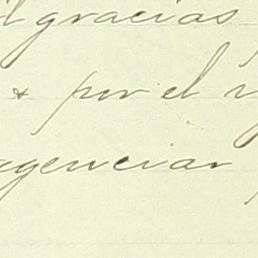 il gracias
x por el
agenciar